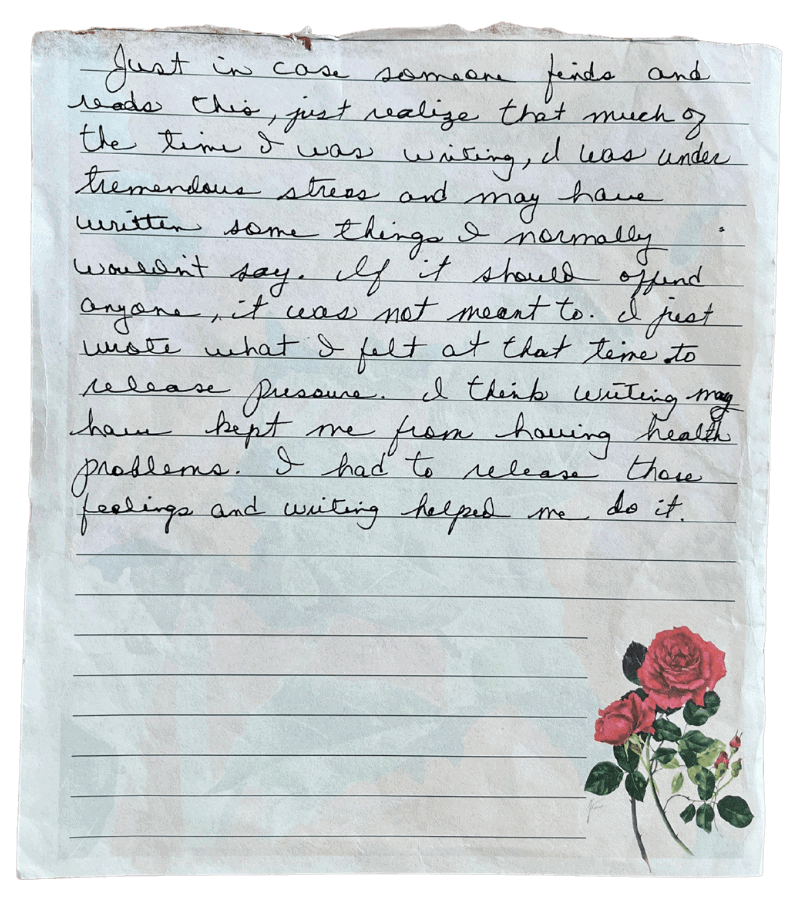 Just in case someone finds and
reads this, just realize that much of
the time I was writing, I was under
tremendous stress and may have
written some things I normally
wouldn't say. If it should offend
anyone, it was not meant to. I just
wrote what I felt at that time to
release pressure. I think writing may
have kept me from having health
problems. I had to release those
feelings and writing helped me do it.